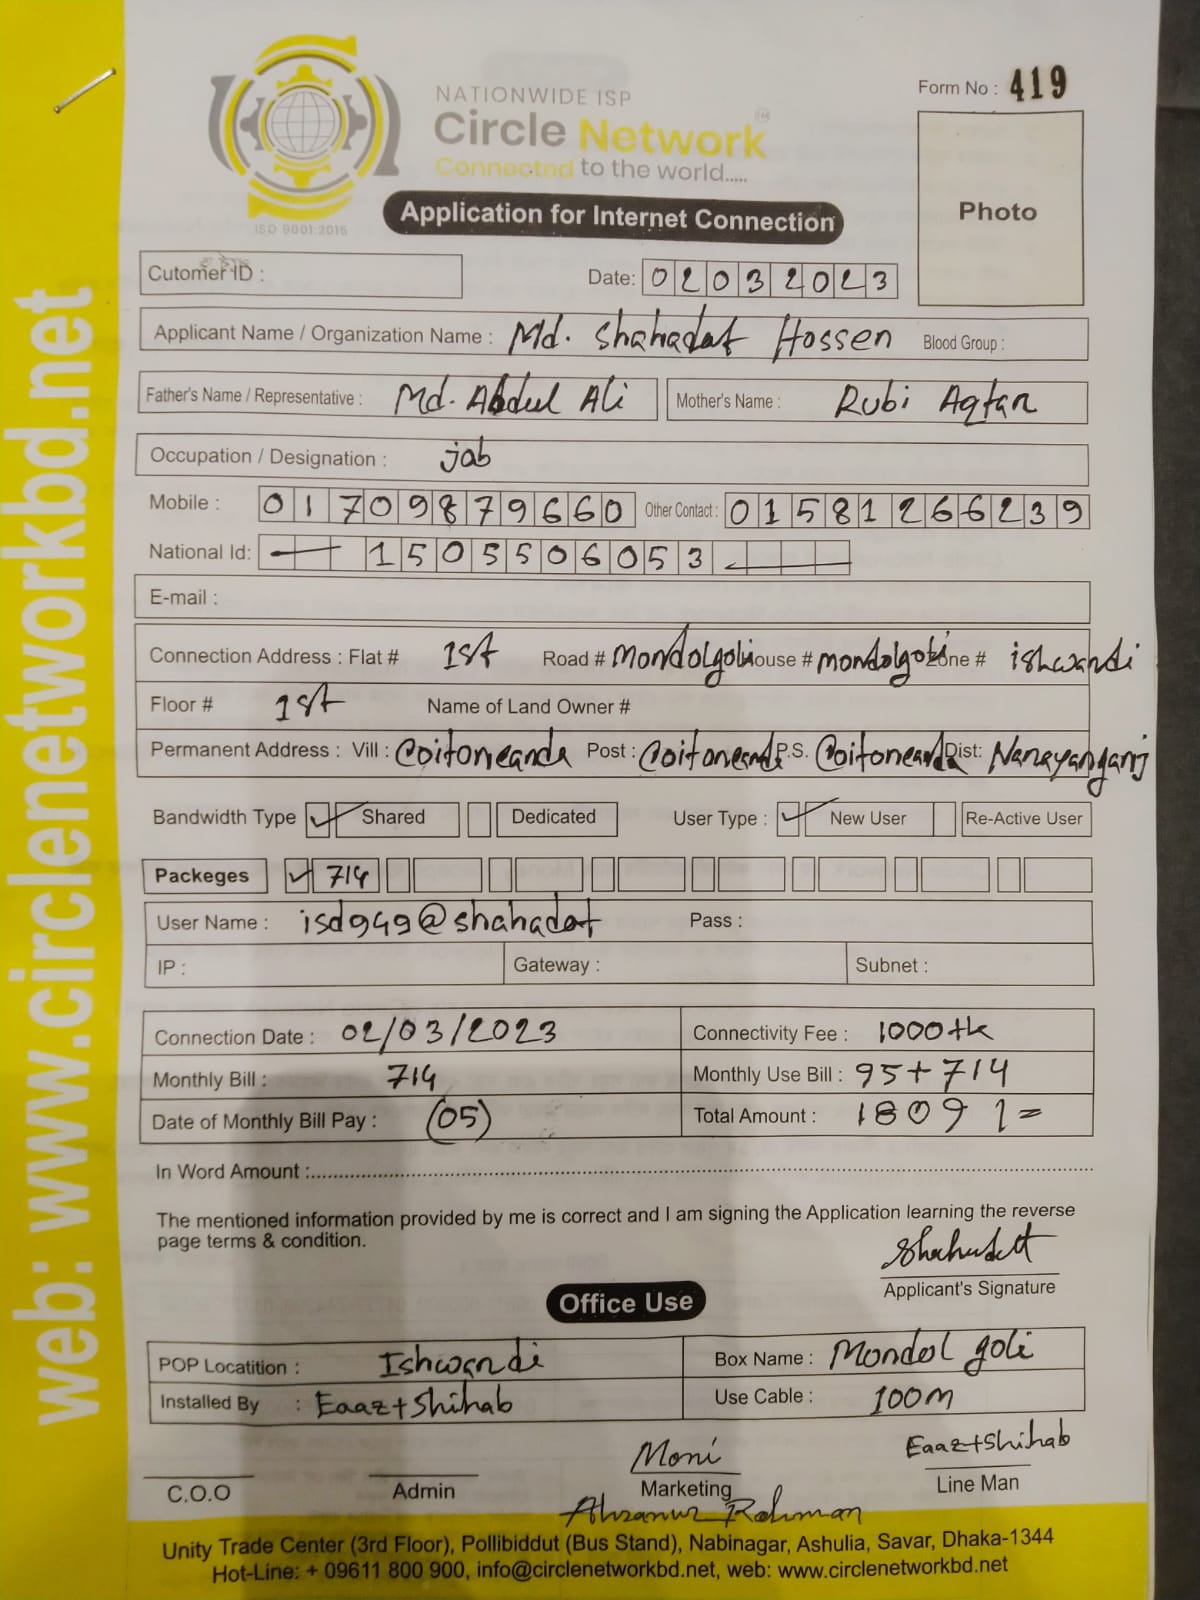 web: www.circlenetworkbd.net
Form No : 419
NATIONWIDE ISP
Circle Network TM
Connected to the world.....
ISO 9001:2015
Application for Internet Connection
Photo
Cutomer ID :
Date: 02032023
Applicant Name / Organization Name : Md. Shahadat Hossen Blood Group :
Father's Name / Representative : Md. Abdul Ali Mother's Name : Rubi Aqtar
Occupation / Designation : job
Mobile : 01709879660 Other Contact : 01581266239
National Id: 1505506053
E-mail :
Connection Address : Flat # 1st Road # mondolgoli House # mondolgoli Zone # ishwandi
Floor # 1st Name of Land Owner #
Permanent Address : Vill : Coitoneanda Post : Coitoneanda P.S. Coitoneanda Dist: Narayanganj
Bandwidth Type ✓ Shared Dedicated User Type : ✓ New User Re-Active User
Packeges ✓ 714
User Name : isd949@shahadat Pass :
IP : Gateway : Subnet :
Connection Date : 02/03/2023 Connectivity Fee : 1000tk
Monthly Bill : 714 Monthly Use Bill : 95+714
Date of Monthly Bill Pay : (05) Total Amount : 1809/=
In Word Amount :
The mentioned information provided by me is correct and I am signing the Application learning the reverse
page terms & condition.
Shahadat
Applicant's Signature
Office Use
POP Locatition : Ishwandi Box Name : Mondol goli
Installed By : Eaaz+Shihab Use Cable : 100M
Moni Eaaz+Shihab
C.O.O Admin Marketing Line Man
Ahsanur Rahman
Unity Trade Center (3rd Floor), Pollibiddut (Bus Stand), Nabinagar, Ashulia, Savar, Dhaka-1344
Hot-Line: + 09611 800 900, info@circlenetworkbd.net, web: www.circlenetworkbd.net